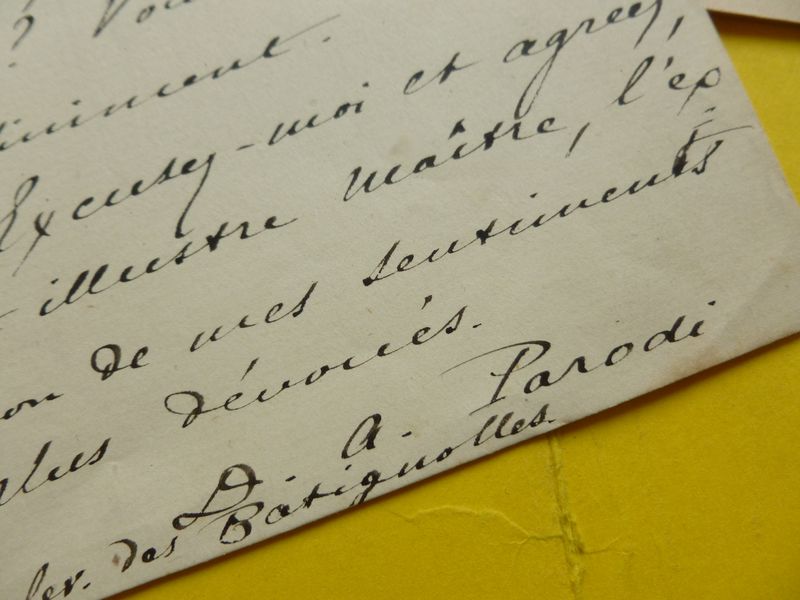 ? Vou
iniment.
Excusez-moi et agréez,
illustre maître, l'ex
on de mes sentiments
plus dévoués.
D. A. Parodi
lev. des Batignolles.